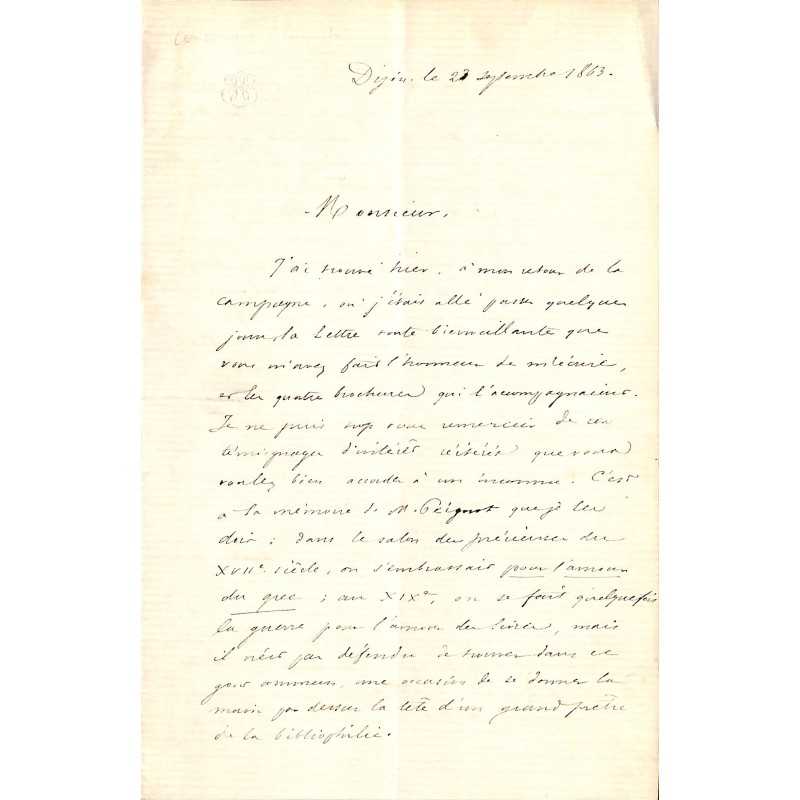 Dijon, le 23 septembre 1863.
Monsieur,
J'ai trouvé hier, à mon retour de la
campagne, où j'étais allé passer quelques
jours, la lettre toute bienveillante que
vous m'avez fait l'honneur de m'écrire,
et les quatre brochures qui l'accompagnaient.
Je ne puis trop vous remercier de ces
témoignages d'intérêt réitérés que vous
voulez bien accorder à un inconnu. C'est
à la mémoire de M. Peignot que je les
dois ; dans le salon des précieuses du
XVIIe siècle, on s'embrassait pour l'amour
du grec ; au XIXe, on se fait quelquefois
la guerre pour l'amour des livres, mais
il n'est pas défendu de trouver dans ce
goût commun, une occasion de se donner la
main par dessus la tête d'un grand prêtre
de la bibliophilie.